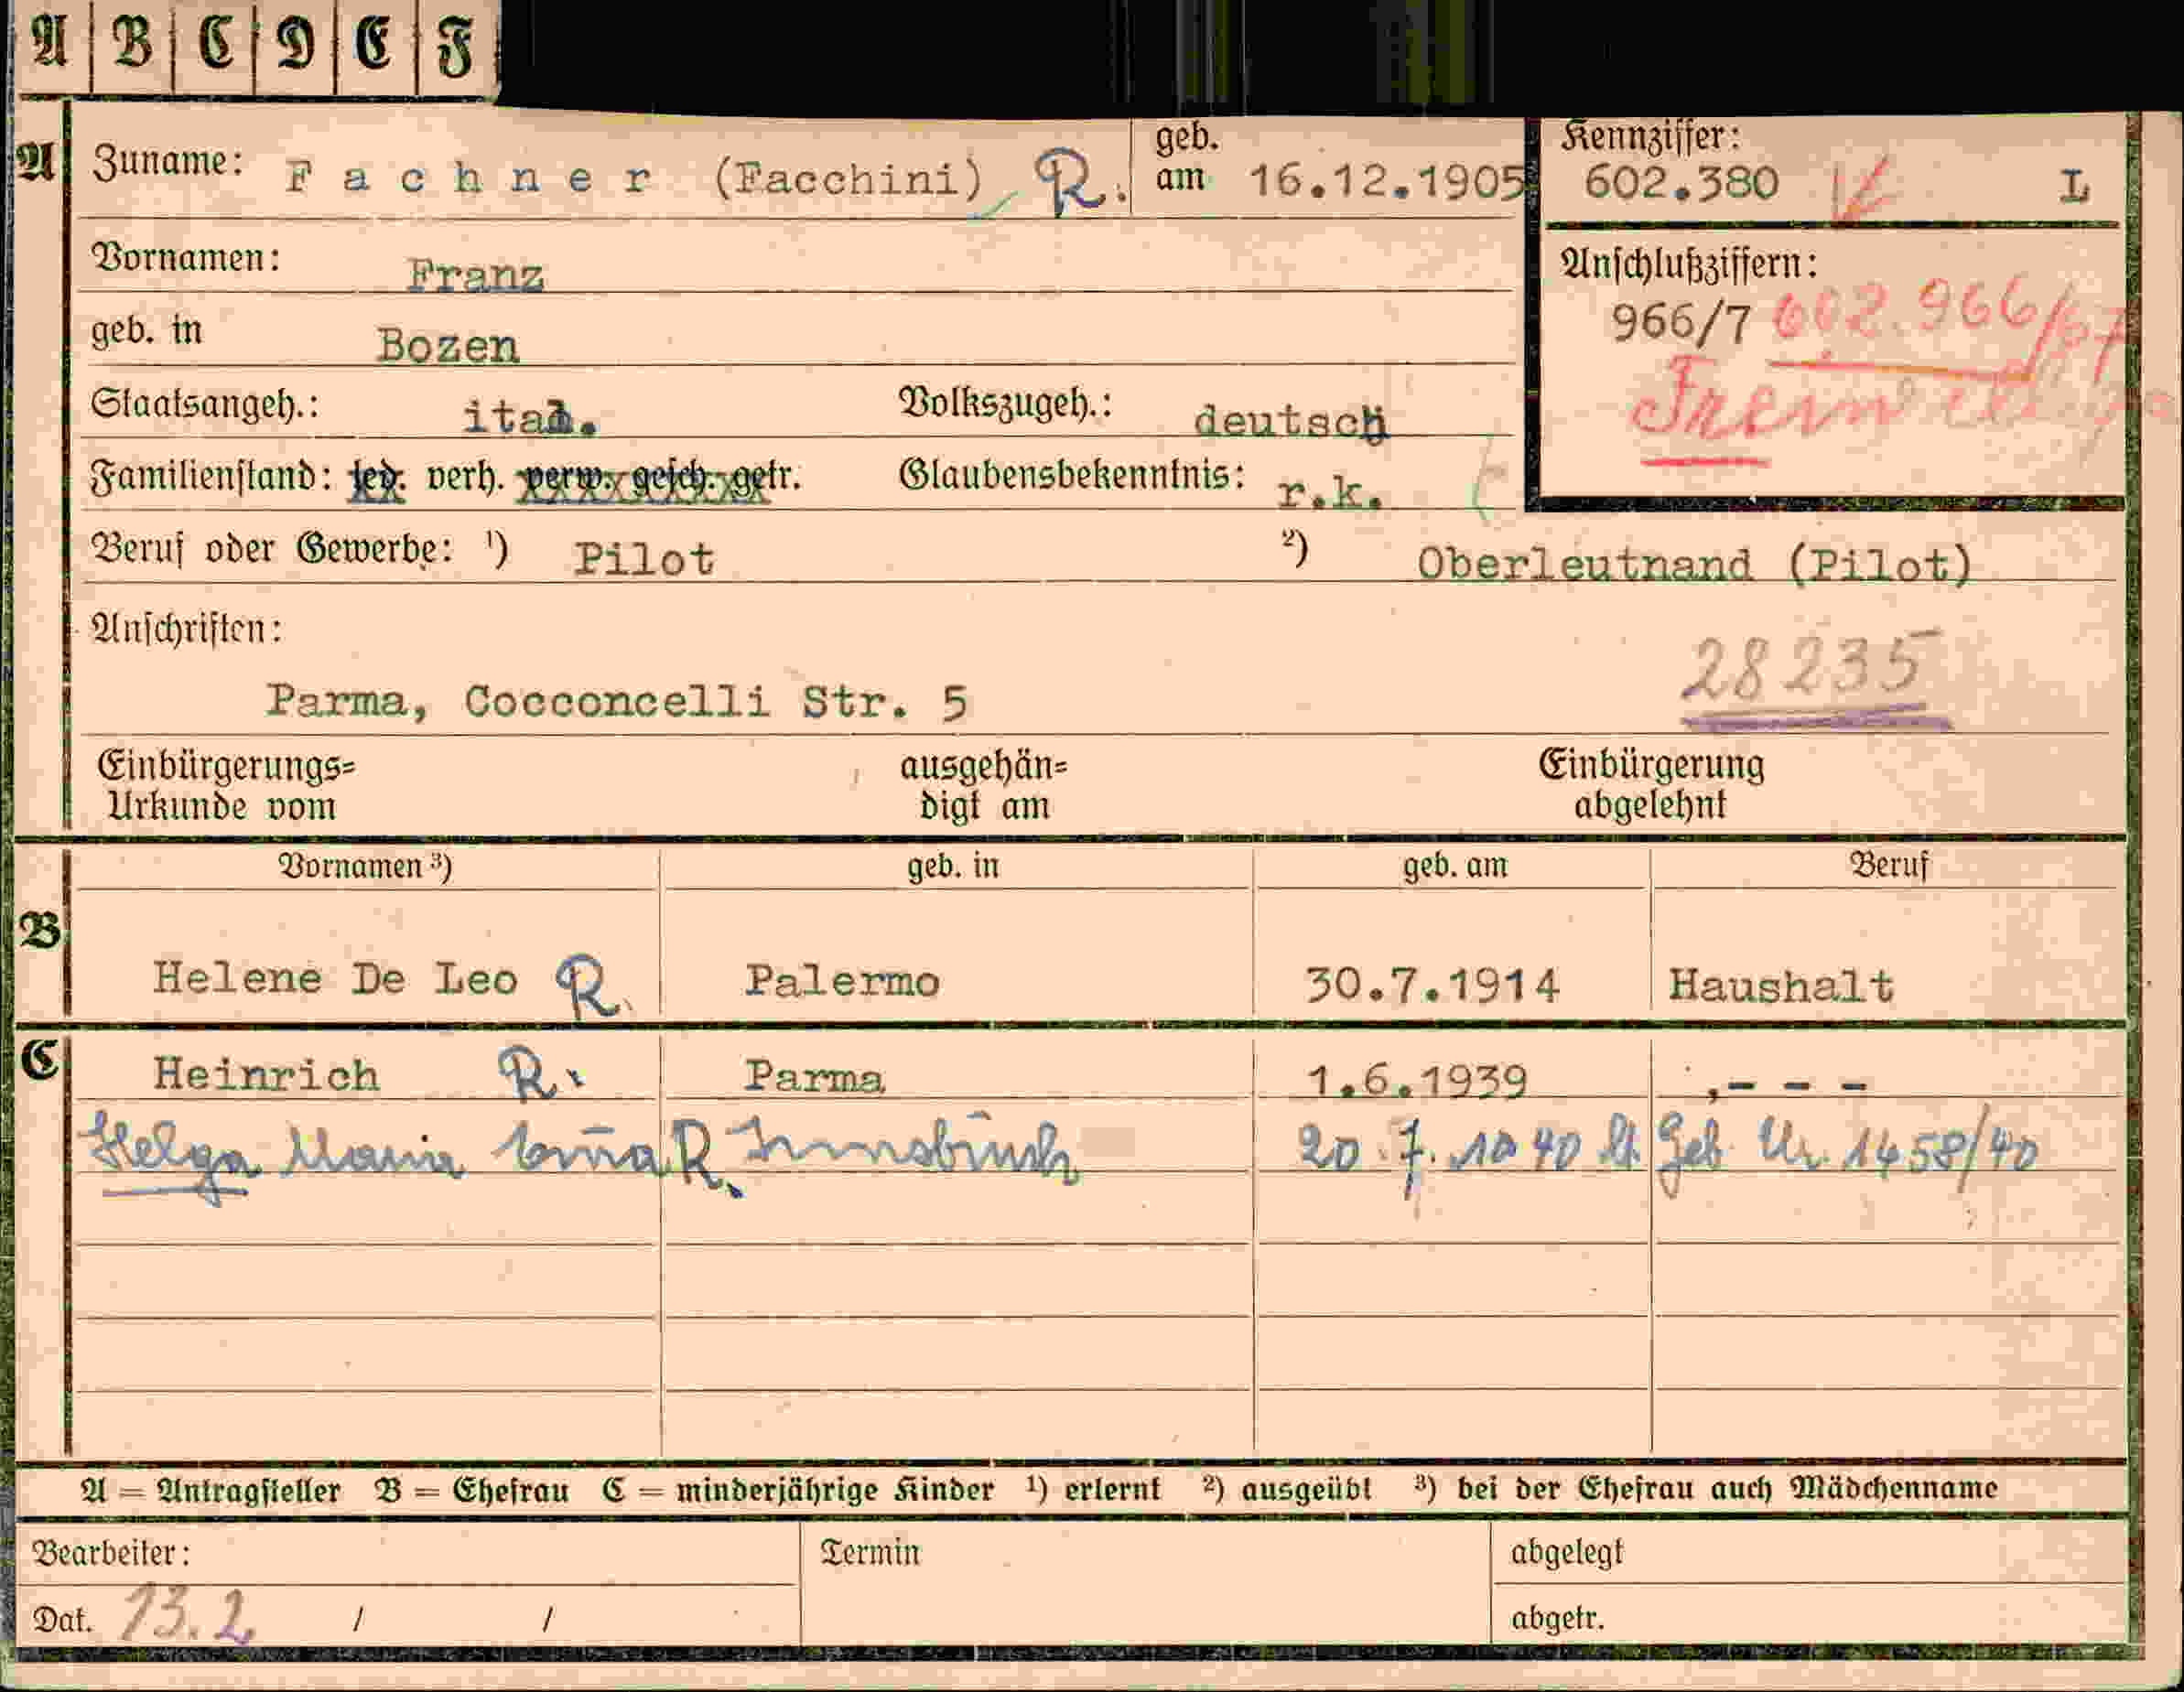 A B C D E F
A Zuname: Fachner (Facchini) R. geb. am 16.12.1905
Kennziffer: 602.380 L
Vornamen: Franz
Anschlußziffern:
966/7 602.966/67
geb. in Bozen
Staatsangeh.: ital. Volkszugeh.: deutsch
Familienstand: led. verh. verw. gesch. getr. Glaubensbekenntnis: r.k.
Beruf oder Gewerbe: ¹) Pilot ²) Oberleutnand (Pilot)
Anschriften:
28235
Parma, Cocconcelli Str. 5
Einbürgerungs= ausgehän= Einbürgerung
Urkunde vom digt am abgelehnt
Vornamen ³) geb. in geb. am Beruf
B
Helene De Leo R. Palermo 30.7.1914 Haushalt
C Heinrich R. Parma 1.6.1939 ,- - -
Helga Maria R. Innsbruck 20.7.1940 lt. Geb. Ur. 1458/40
A = Antragsteller B = Ehefrau C = minderjährige Kinder ¹) erlernt ²) ausgeübt ³) bei der Ehefrau auch Mädchenname
Bearbeiter: Termin abgelegt
Dat. 13.2 / / abgetr.